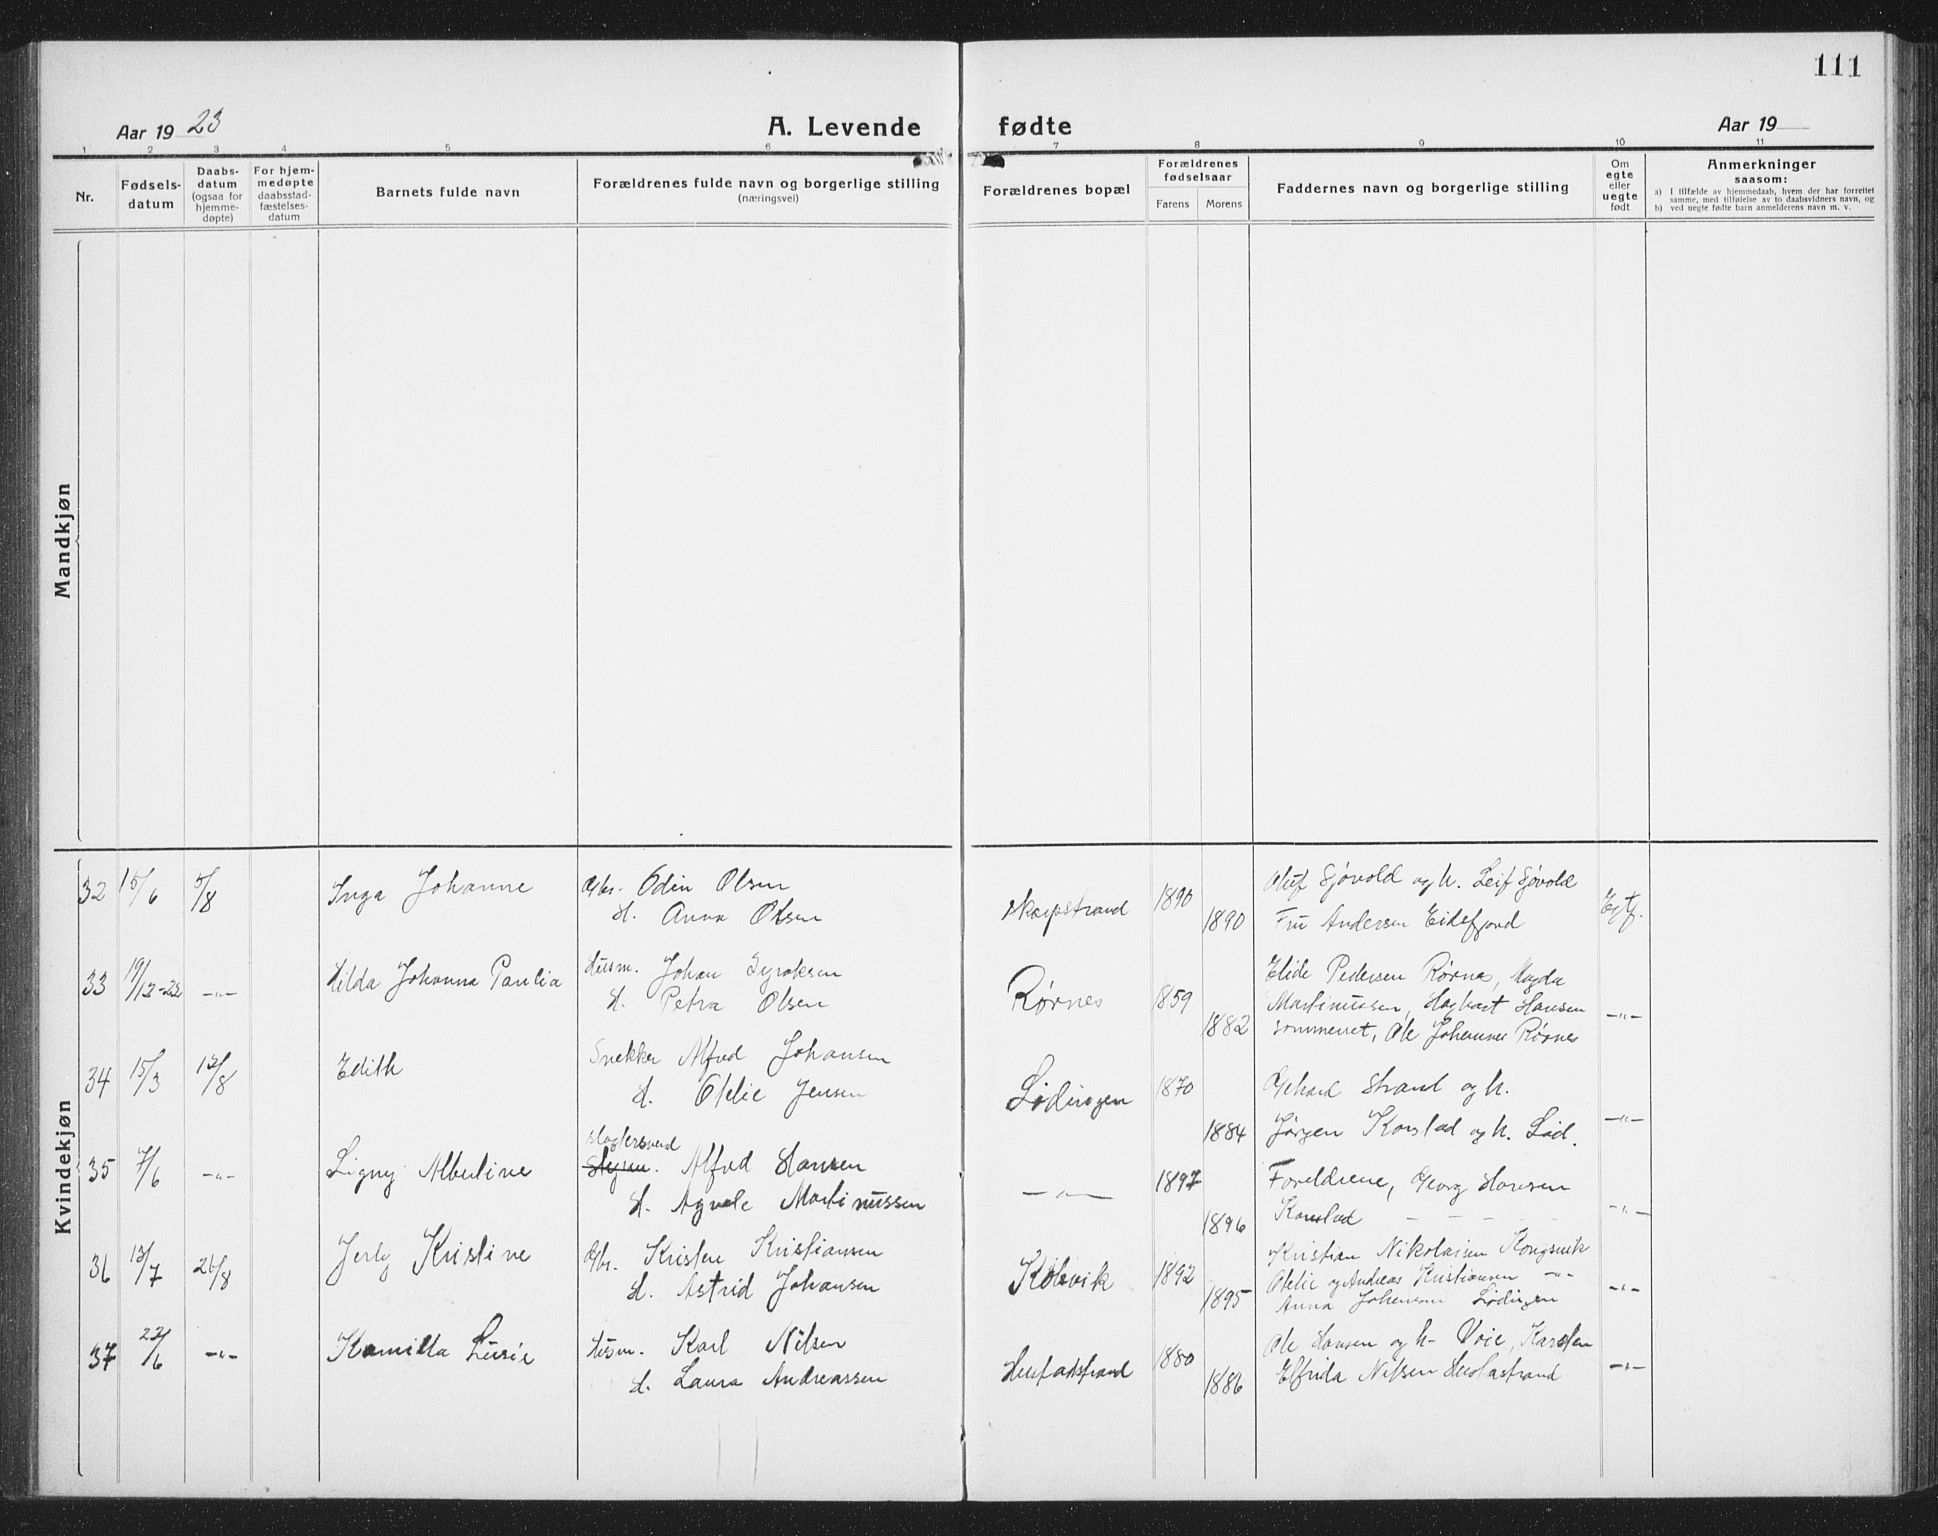 111
Aar 1923
A. Levende fødte
Aar 19
1 2 3 4 5 6 7 8 9 10 11
Nr.
Fødsels-
datum
Daabs-
datum
(ogsaa for
hjemme-
døpte)
For hjem-
medøpte
daabsstad-
fæstelses-
datum
Barnets fulde navn
Forældrenes fulde navn og borgerlige stilling
(næringsvei)
Forældrenes bopæl
Forældrenes
fødselsaar
Farens Morens
Faddernes navn og borgerlige stilling
Om
egte
eller
uegte
født
Anmerkninger
saasom:
a) I tilfælde av hjemmedaab, hvem der har forrettet
samme, med tilføielse av to daabsvidners navn, og
b) ved uegte fødte barn anmelderens navn m. v.
Mandkjøn
Kvindekjøn
32 15/6 5/8 Inga Johanne Gbr. Odin Olsen
H. Anna Olsen
Skarpstrand 1890 1890
Oluf Sjøvold og h. Leif Sjøvold
Fru Andersen Eidefjord
Egtf.
33 19/12-22 -"- Hilda Johanna Paulia Husm. Johan
H. Petra Olsen
Rørnes 1859 1882
Elide Pedersen Rørnes, Magda
Martinussen, Hagbart Hansen
Sommerset, Ole Johannes Rørnes
-"-
34 15/3 12/8 Edith Snekker Alfred Johansen
H. Otelie Jensen
Lødingen 1870 1884
Gehard Strand og h.
Jørgen Korstad og h. Lød.
-"-
35 7/6 -"- Signy Albertine Alfred Hansen
H. Agnete Martinussen
-"- 1897 1896
Foreldrene, Georg Hansen
Korstad
-"-
36 13/7 26/8 Jerly Kristine Gbr. Kristen Kristiansen
H. Astrid Johansen
Kolsvik 1892 1895
Kristian Nikolaisen Kongsvik
Otelie og Andreas Kristiansen -"-
Anna Johansen Lødingen
-"-
37 22/6 -"- Kamilla Lusie Husm. Karl Nilsen
H. Laura Andreassen
Hustadstrand 1880 1886
Ole Hansen og h- Voie, Karsten
Elfrida Nilsen Hustastrand
-"-